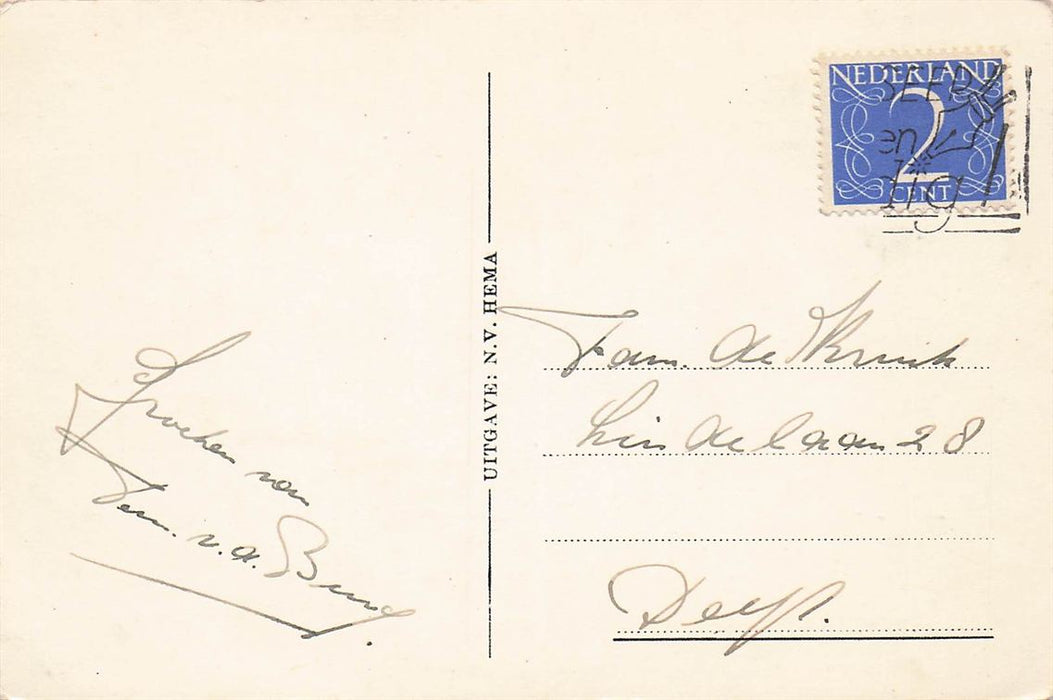 NEDERLAND
2
CENT
UITGAVE: N.V. HEMA
Fam. de Kruik
Lindelaan 28
Delft.
Groeten van
Fam. v.d.